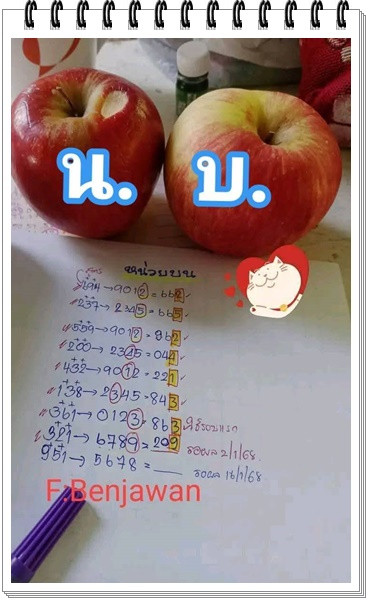 น. บ.
สูตร หน่วยบน
294→9012=662
237→2345=665
559→9012=962
200→2345=044
432→9012=221
138→2345=843
361→0123=863 ใช้รอบแรก
321→6789=209 รอผล 2/1/68
951→5678=___ รอผล 16/1/68
F.Benjawan